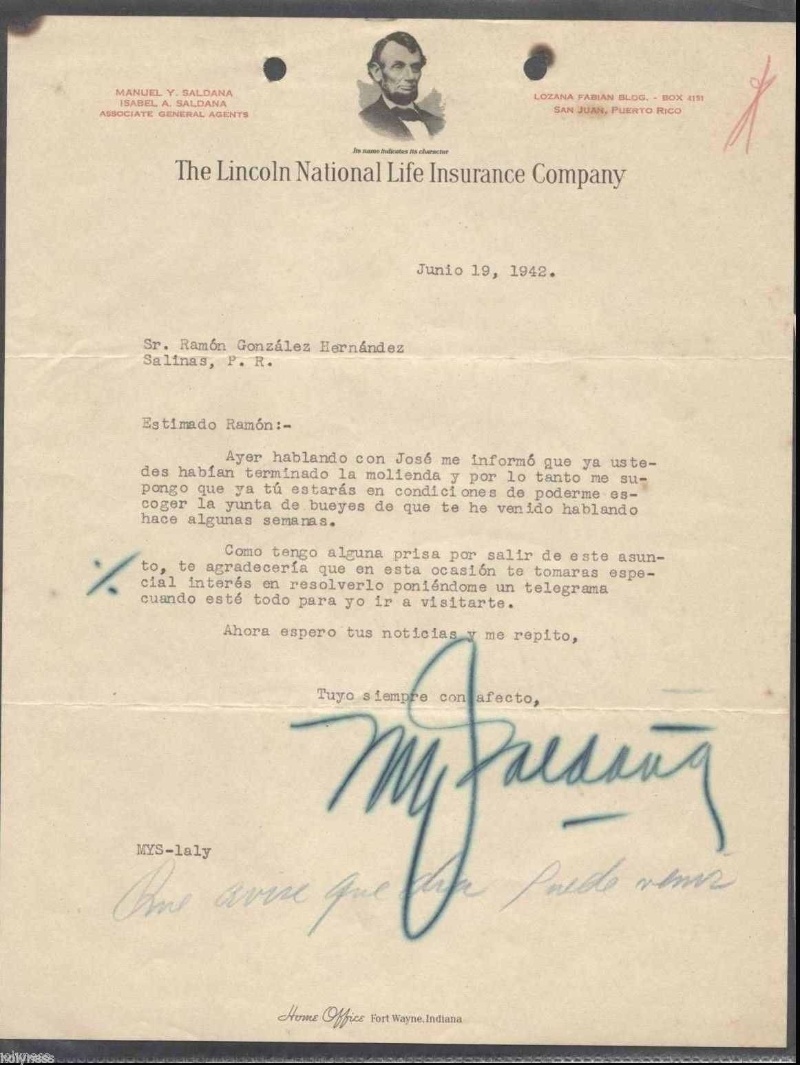 MANUEL Y. SALDANA
ISABEL A. SALDANA
ASSOCIATE GENERAL AGENTS
LOZANA FABIAN BLDG. - BOX 4151
SAN JUAN, PUERTO RICO
Its name indicates its character
The Lincoln National Life Insurance Company
Junio 19, 1942.
Sr. Ramón González Hernández
Salinas, P. R.
Estimado Ramón:-
Ayer hablando con José me informó que ya uste-
des habían terminado la molienda y por lo tanto me su-
pongo que ya tú estarás en condiciones de poderme es-
coger la yunta de bueyes de que te he venido hablando
hace algunas semanas.
Como tengo alguna prisa por salir de este asun-
to, te agradecería que en esta ocasión te tomaras espe-
cial interés en resolverlo poniéndome un telegrama
cuando esté todo para yo ir a visitarte.
Ahora espero tus noticias y me repito,
Tuyo siempre con afecto,
MYSaldaña
MYS-laly
Que avise que dia puede venir
Home Office Fort Wayne, Indiana
holyness